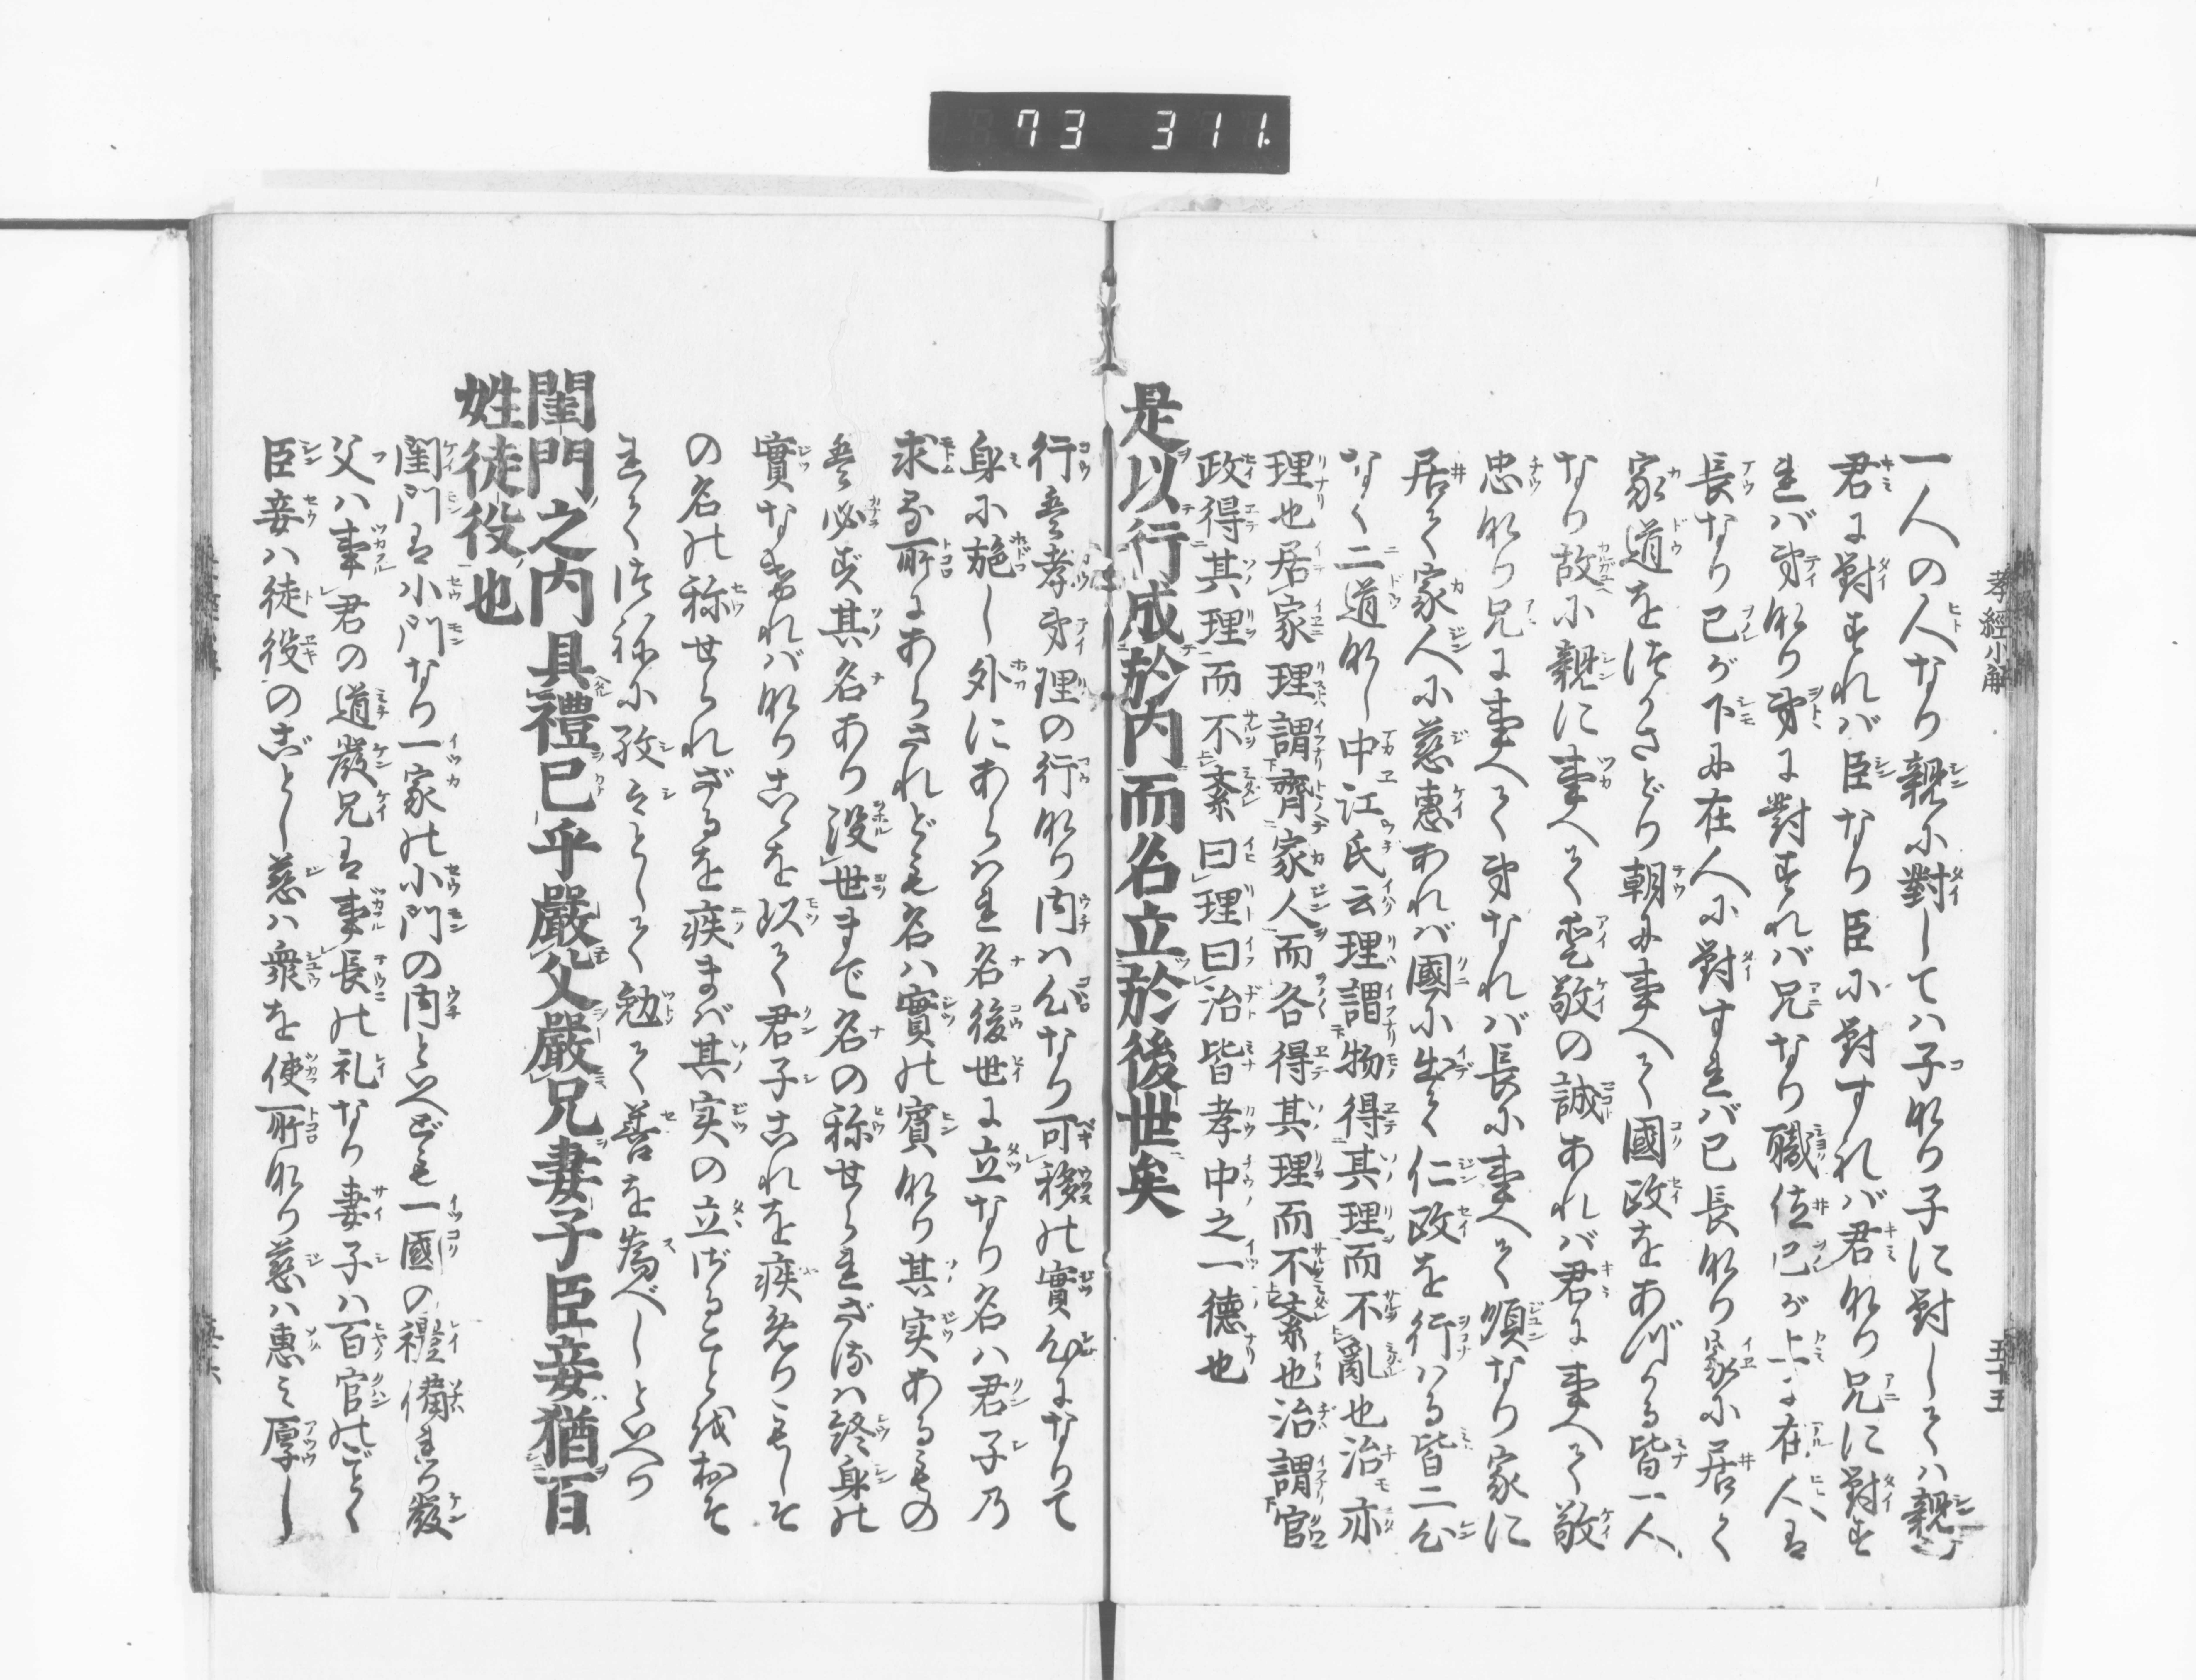 73 311.
孝經小解
五十五
一人の人なり親に對しては子なり子に對しては親なり
君に對すれば臣なり臣に對すれば君なり兄に對す
れば弟なり弟に對すれば兄なり職位己が上に在人は
長なり己が下に在人に對すれば己長なり家に居て
家道をつかさどり朝に事へて國政をあづかる皆一人
なり故に親に事へて愛敬の誠あれば君に事へて敬
忠なり兄に事へて弟なれば長に事へて順なり家に
居て家人に慈惠あれば國に出て仁政を行はる皆二心
なく二道なし中江氏云理謂物得其理而不亂也治亦
理也居家理謂齊家人而各得其理而不紊也治謂官
政得其理而不紊曰理曰治皆孝中之一德也
是以行成於内而名立於後世矣
行は孝弟理の行なり内は心なり可移の實心になりて
身に施し外にあらはれ名後世に立なり名は君子乃
求る所にあらされども名は實の賓なり其実あるもの
は必ず其名あり没世まで名の称せられざるは終身の
實なければなりこゝを以て君子これを疾めりもしそ
の名の称せられざるを疾まば其実の立ざることをおそ
れてつねに孜々として勉て善を為べしといへり
閨門之内具禮已乎嚴父嚴兄妻子臣妾猶百
姓徒役也
閨門は小門なり一家の小門の内といへども一國の禮備れり嚴
父は事君の道嚴兄は事長の礼なり妻子は百官のごとく
臣妾は徒役のごとし慈は衆を使所なり慈は惠み厚し